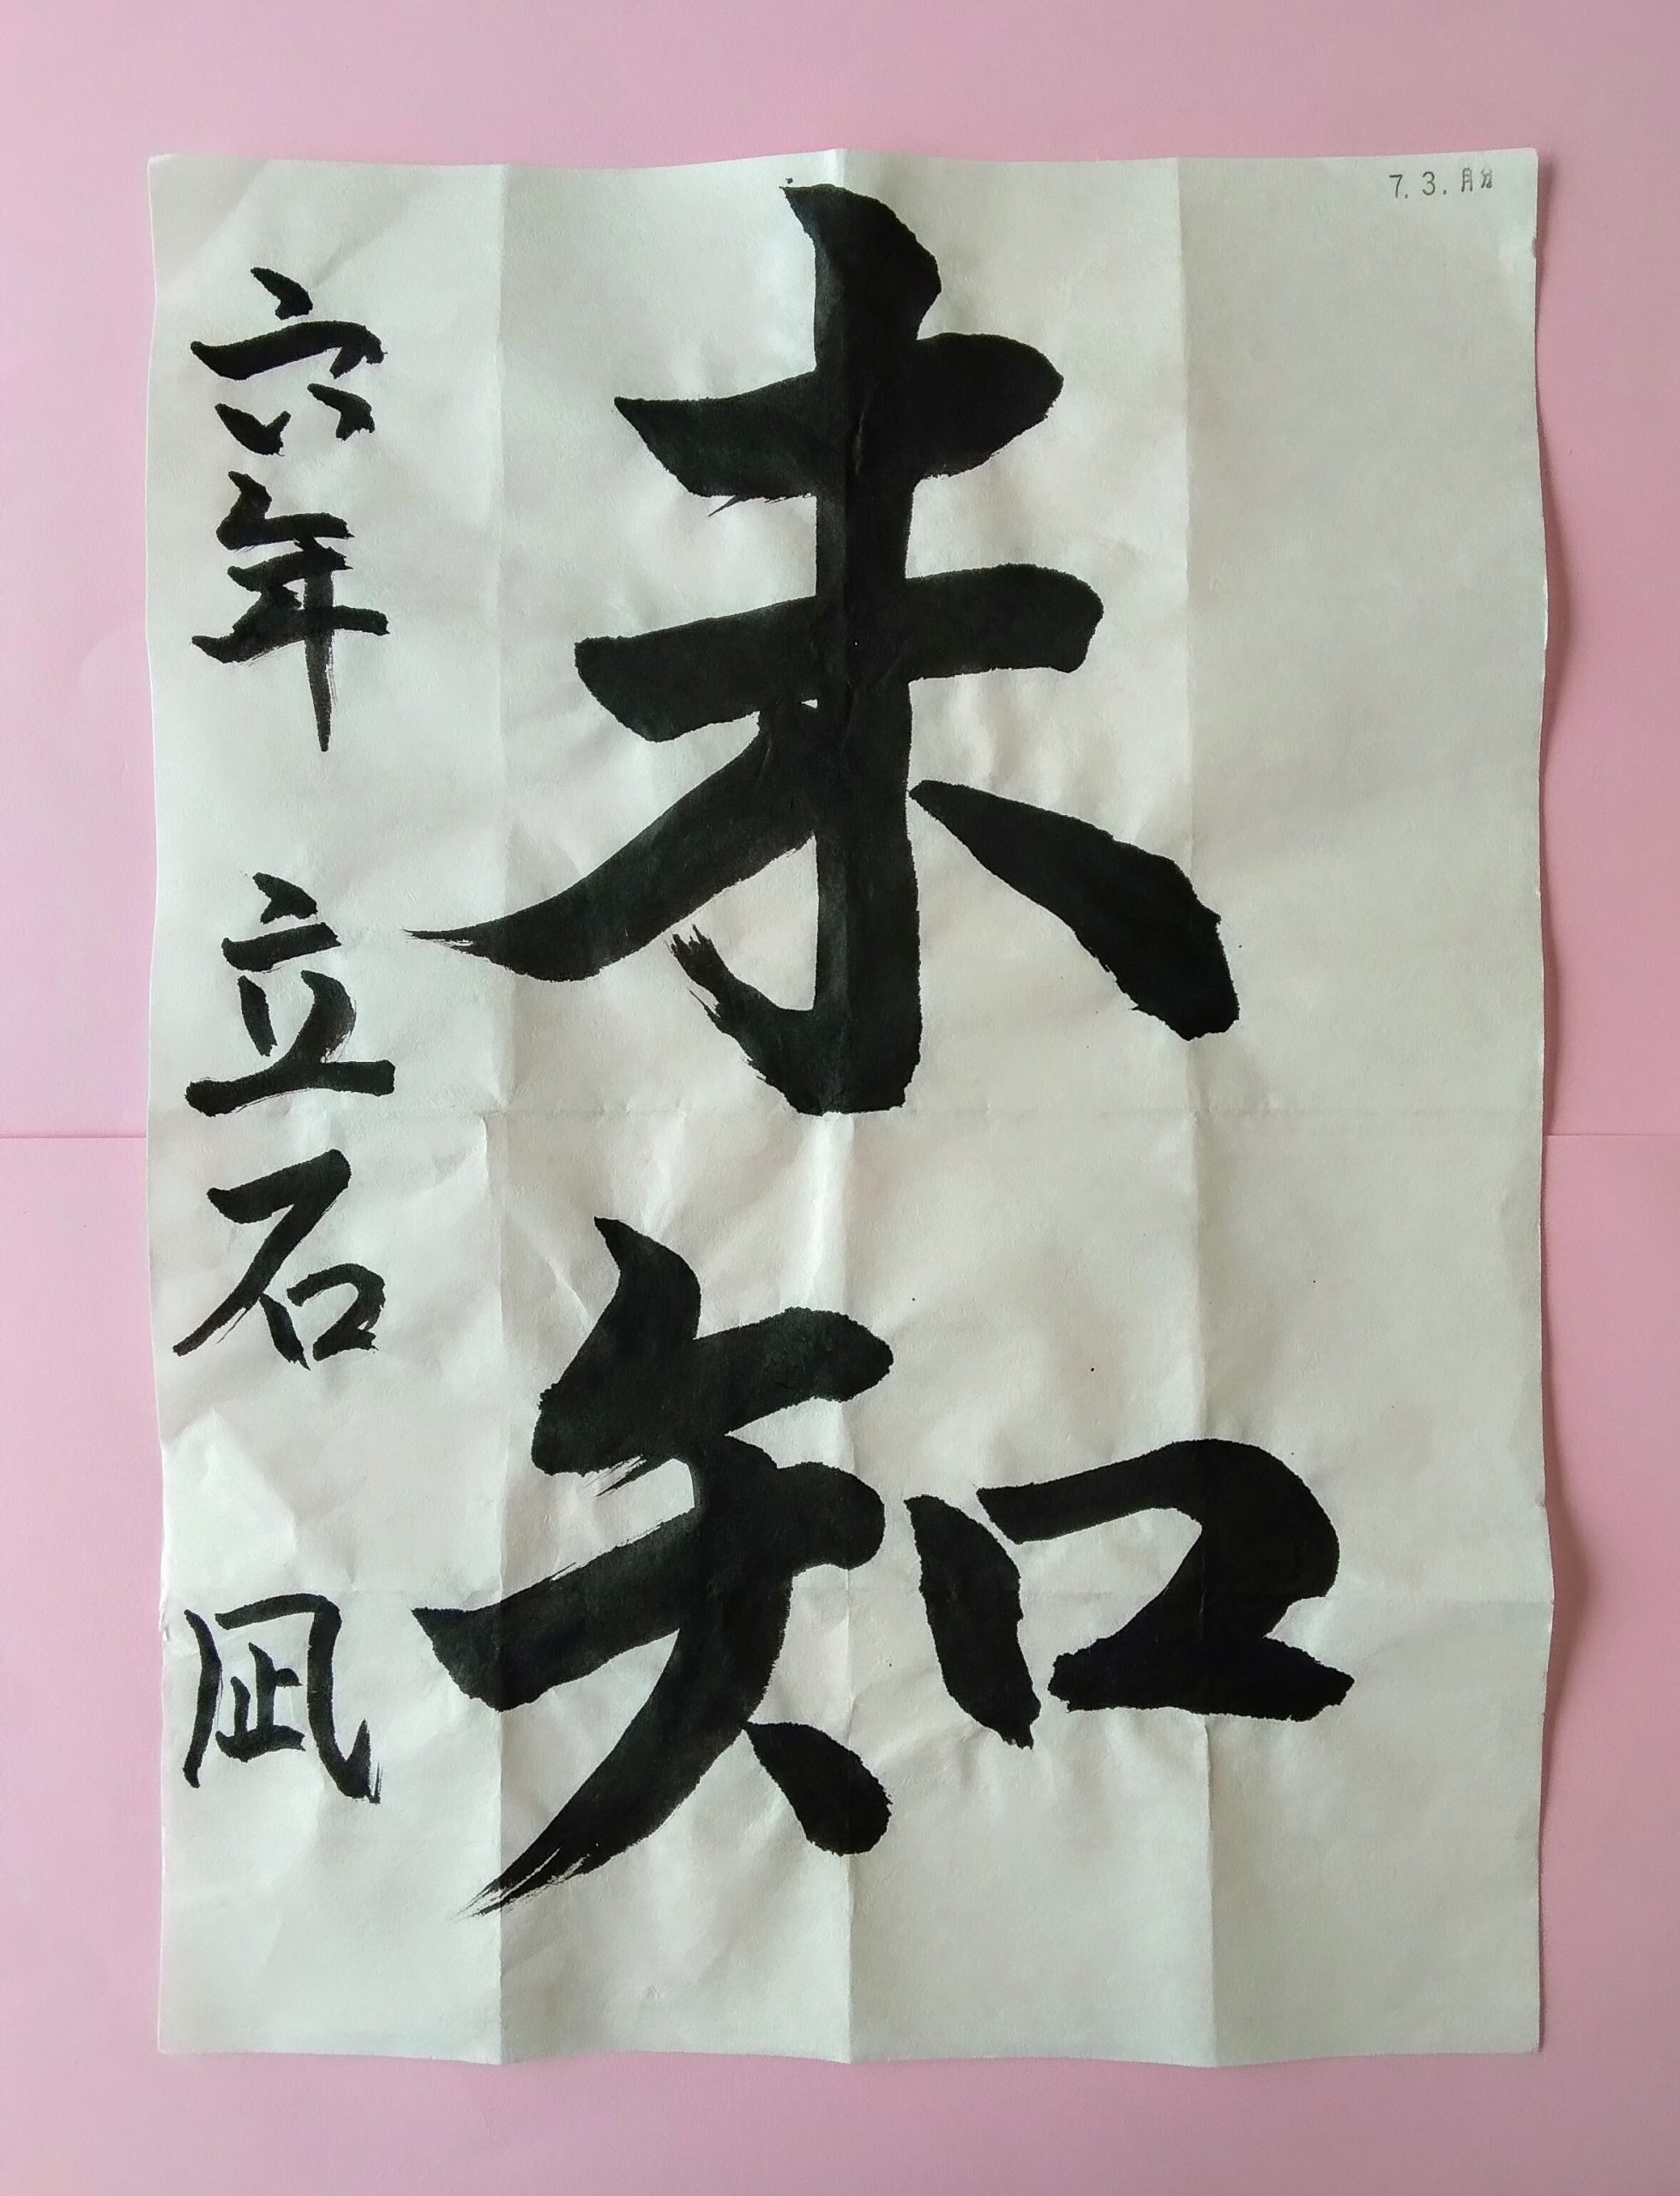 7.3.月分
未知
六年 立石 凪